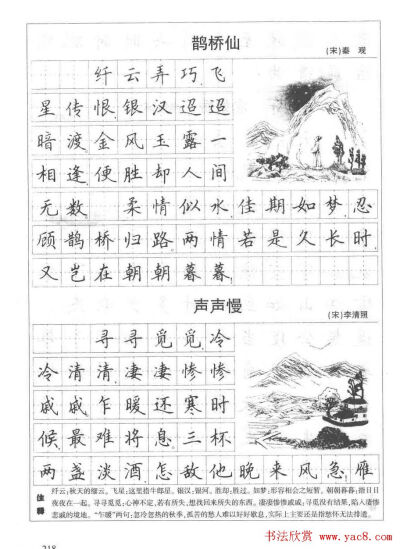 鹊桥仙
(宋)秦 观
纤云弄巧,飞
星传恨,银汉迢迢
暗渡。金风玉露一
相逢,便胜却人间
无数。 柔情似水,佳期如梦,忍
顾鹊桥归路。两情若是久长时,
又岂在朝朝暮暮。
声声慢
(宋)李清照
寻寻觅觅,冷
冷清清,凄凄惨惨
戚戚。乍暖还寒时
候,最难将息。三杯
两盏淡酒,怎敌他晚来风急。雁
注释
纤云:秋天的细云。飞星:这里指牛郎星。银汉:银河。胜却:胜过。如梦:形容相会之短暂。朝朝暮暮:指日日
夜夜在一起。寻寻觅觅:心神不定,若有所失,想找回来所失的东西。凄凄惨惨戚戚:寻觅没有结果,陷入凄惨
悲戚的境地。“乍暖”两句:忽冷忽热的秋季,孤苦的愁人难以好好歇息,实际上主要还是指愁怀无法排遣。
218
书法欣赏
www.yac8.com